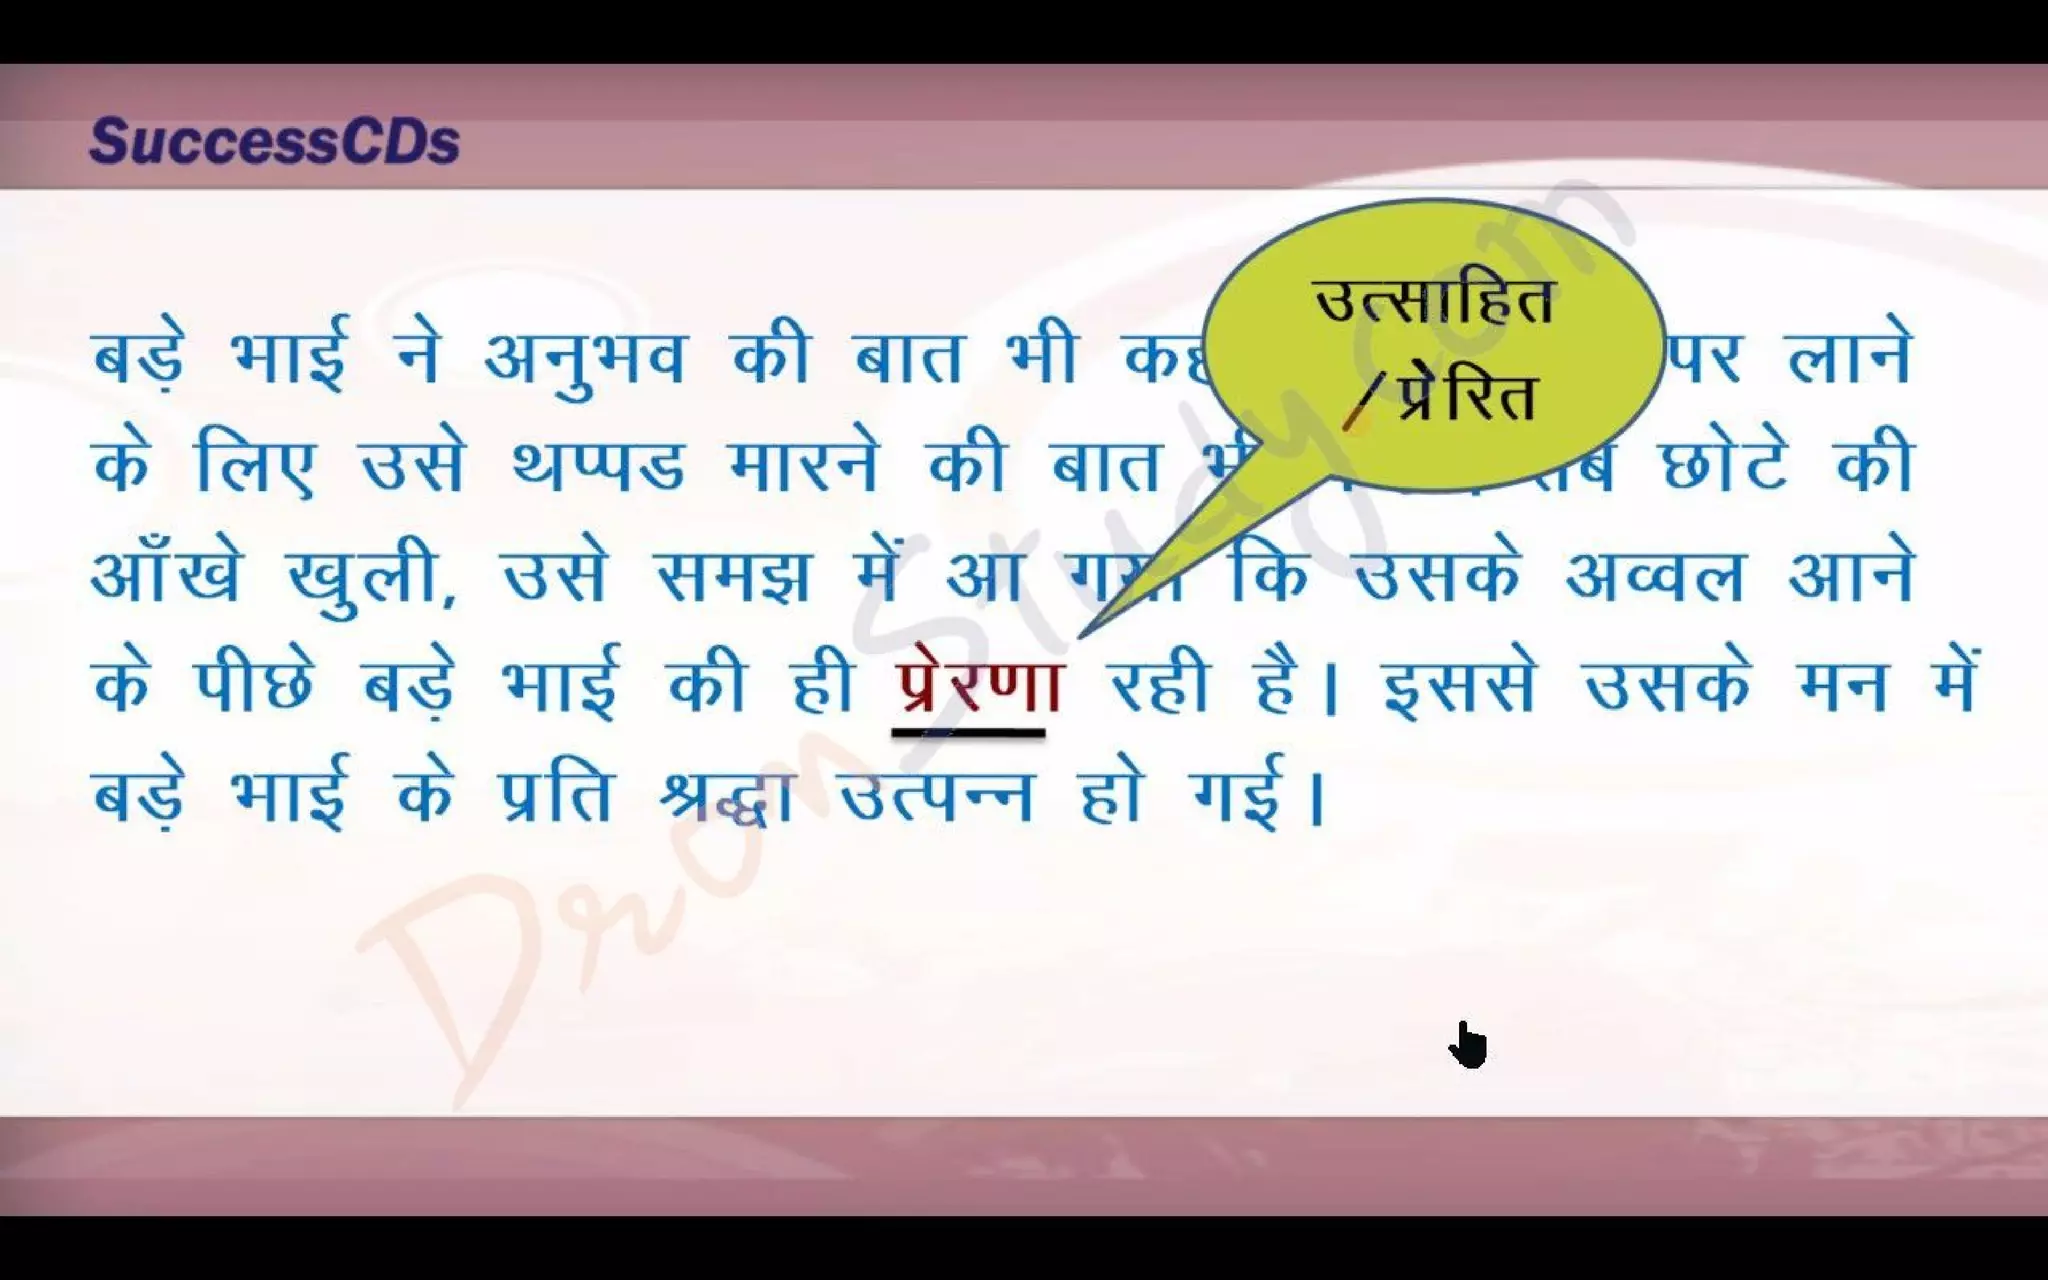 SuccessCDs
उत्साहित
/प्रेरित
बड़े भाई ने अनुभव की बात भी पर लाने
के लिए उसे थप्पड मारने की बात छोटे की
आँखे खुली, उसे समझ में आ गया कि उसके अव्वल आने
के पीछे बड़े भाई की ही प्रेरणा रही है। इससे उसके मन में
बड़े भाई के प्रति श्रद्धा उत्पन्न हो गई।
DronStudy.com